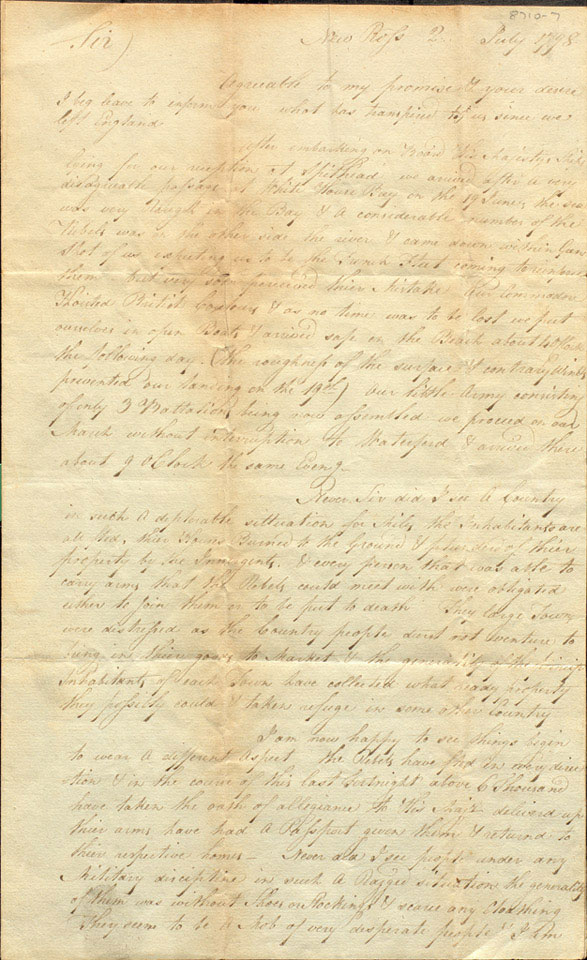 8710-7
Sir) New Ross 2 July 1798
Agreeable to my promise & your desire
I beg leave to inform you what has transpired to us since we
left England
After embarking on Board His Majestys Ships
lying for our reception at Spithead we arrived after a very
disagreeable passage at White House Bay on the 19 June, the sea
was very Rough in the Bay & A considerable number of the
Rebels was on the other side the river & came down within Gun
Shot of us expecting us to be the French Fleet coming to reinforce
them but very soon perceived thier Mistake Our Commodore
Hoisted British Coulours & as no time was to be lost we put
ourselves in open Boats & arrived safe on the Beach about 4 oClock
the following day. (The roughness of the surface & contrary Winds
prevented our landing on the 19th) Our little Army consisting
of only 3 Battalions being now assembled we proceed on our
March without Interruption to Waterford & arrived there
about 9 oClock the same Eveng
Never Sir did I see A Country
in such A deplorable sittuation for Miles the Inhabitants are
all fled, thier Houses Burned to the Ground & plunder'd of thier
property by the Insurgents, & every person that was able to
carry arms that the Rebels could meet with were obligated
either to Join them or to be put to death They large Towns
were distressed as the Country people durst not Venture to
bring in thier goods to Market & the generality of the
Inhabitants of each Town have collected what ready property
they possibly could & taken refuge in some other Country
I am now happy to see things begin
to wear A different Aspect the Rebels have fled in every direc
tion & in the course of this last fortnight above 6 Thousand
have taken the oath of allegiance to His Majy deliverd up
thier arms have had A Passport given them & returned to
thier respective homes — Never did I see people under any
Military discipline in such A Ragged situation the generality
of them was without Shoes or Stockings & scarce any Cloathing
They seem to be A Mob of very desperate people & I am